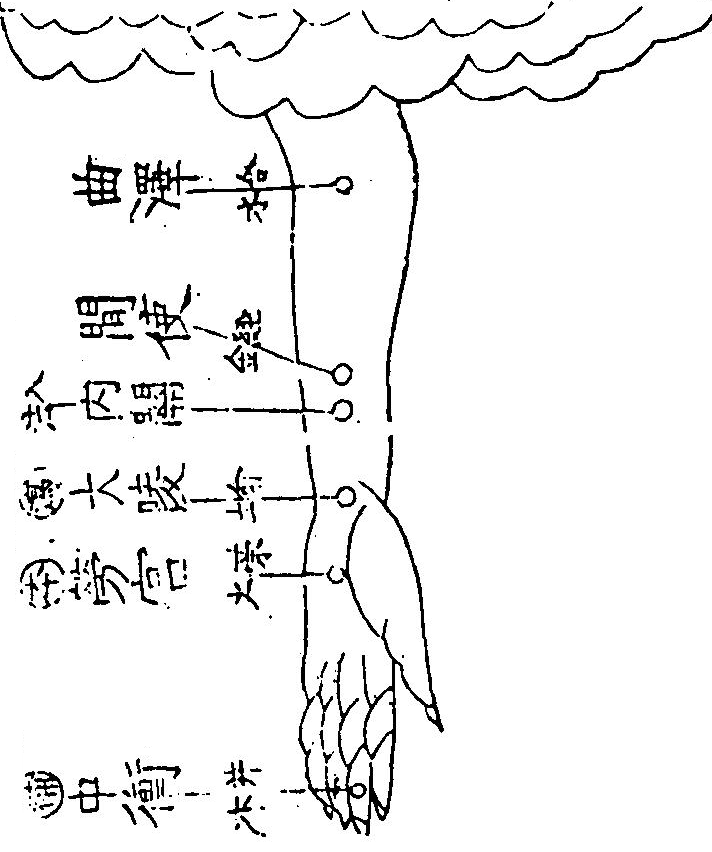 曲澤 合水
間使 經金
內關
大陵
勞宮 榮火
中衝 井木